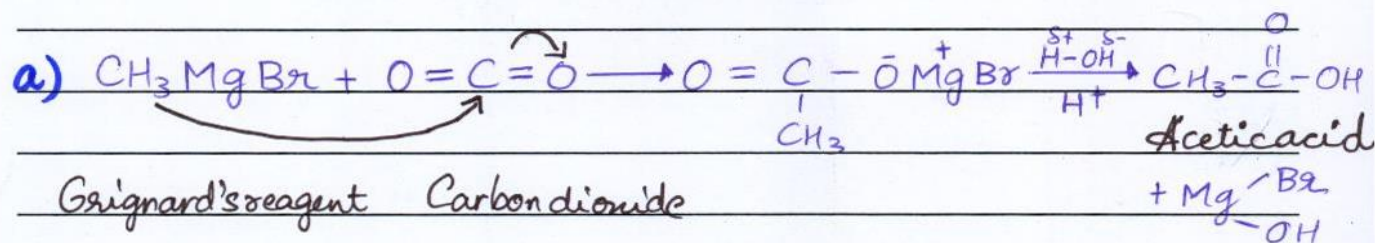 a) CH₃MgBr + O=C=O → O = C - ŌM⁺gBr → CH₃-C-OH
Hδ+-OHδ-
H⁺
O
||
CH₃
Acetic acid
Grignard's reagent Carbon dioxide + Mg Br
OH